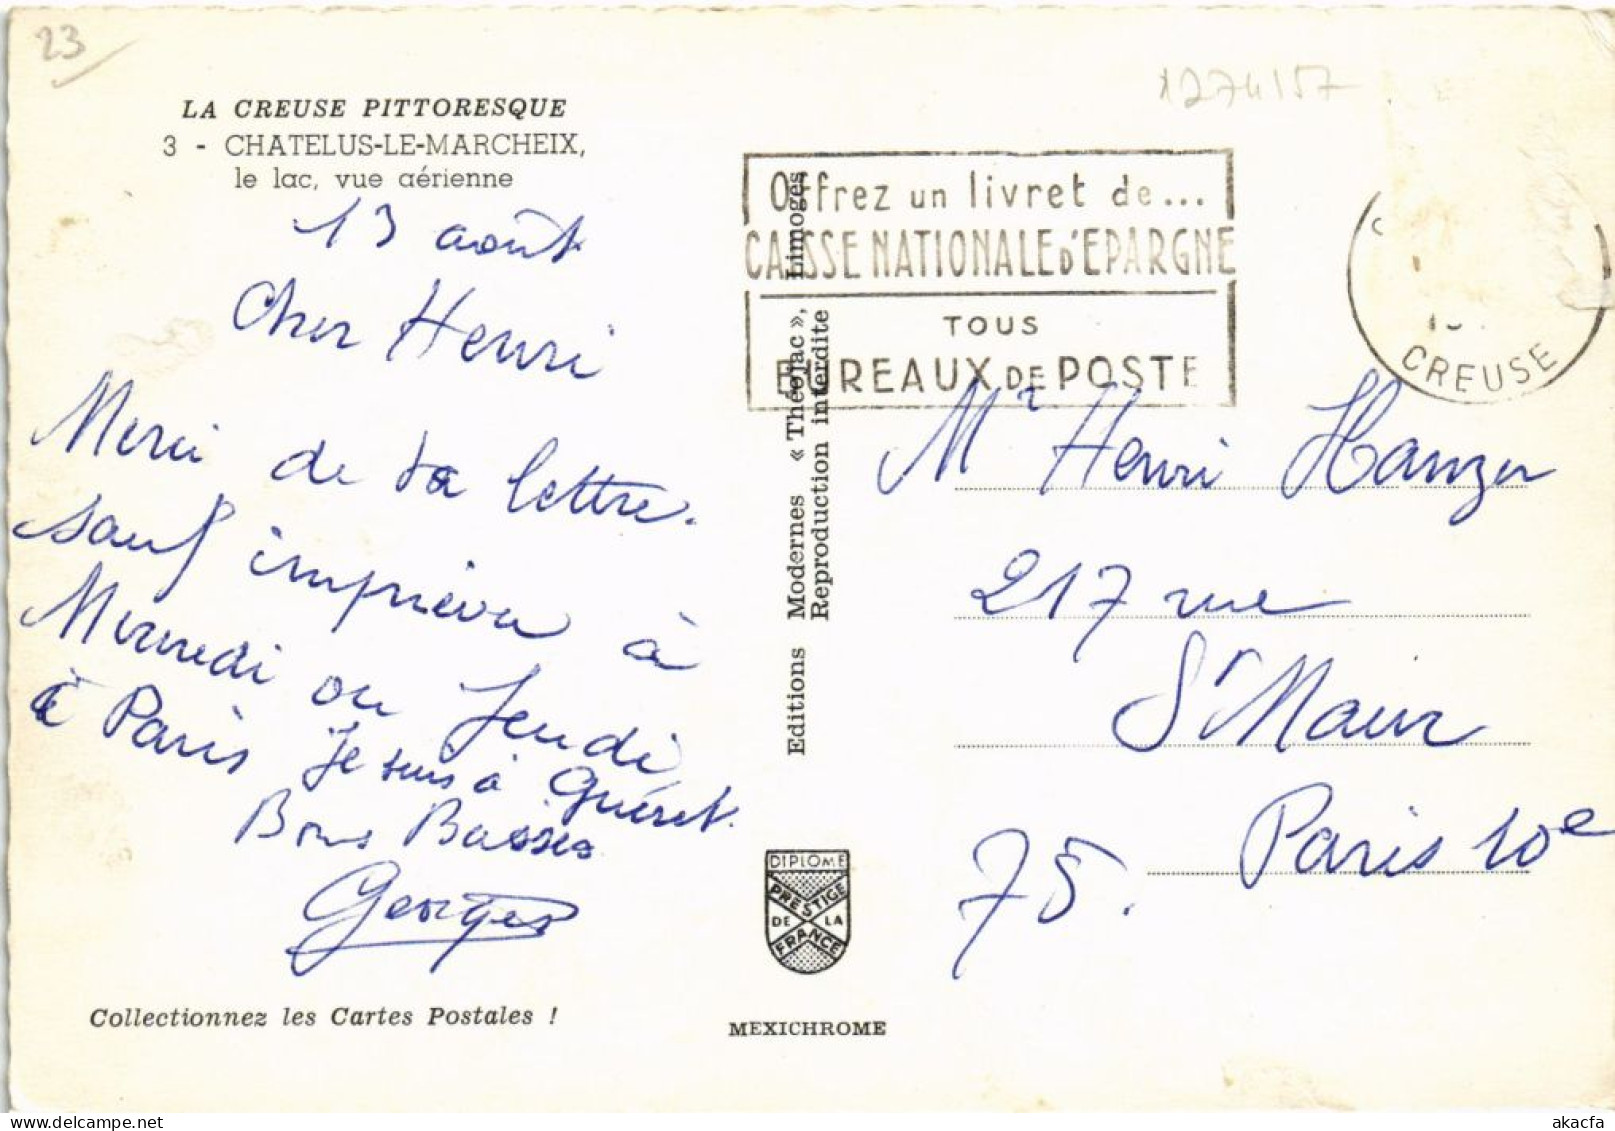 23
LA CREUSE PITTORESQUE
3 - CHATELUS-LE-MARCHEIX,
le lac, vue aérienne
13 août
Cher Henri
Merci de ta lettre.
sauf imprévu à
Mercredi ou Jeudi
à Paris Je suis à Guéret.
Bons Baisers
Georges
Collectionnez les Cartes Postales !
Editions Modernes « Théojac », Limoges
Reproduction interdite
DIPLOME
PRESTIGE
DE LA
FRANCE
MEXICHROME
1274157
Offrez un livret de...
CAISSE NATIONALE D'EPARGNE
TOUS
BUREAUX DE POSTE
CREUSE
Mr Henri Hanzer
217 rue
St Maur
Paris 10e
75.
akacfa